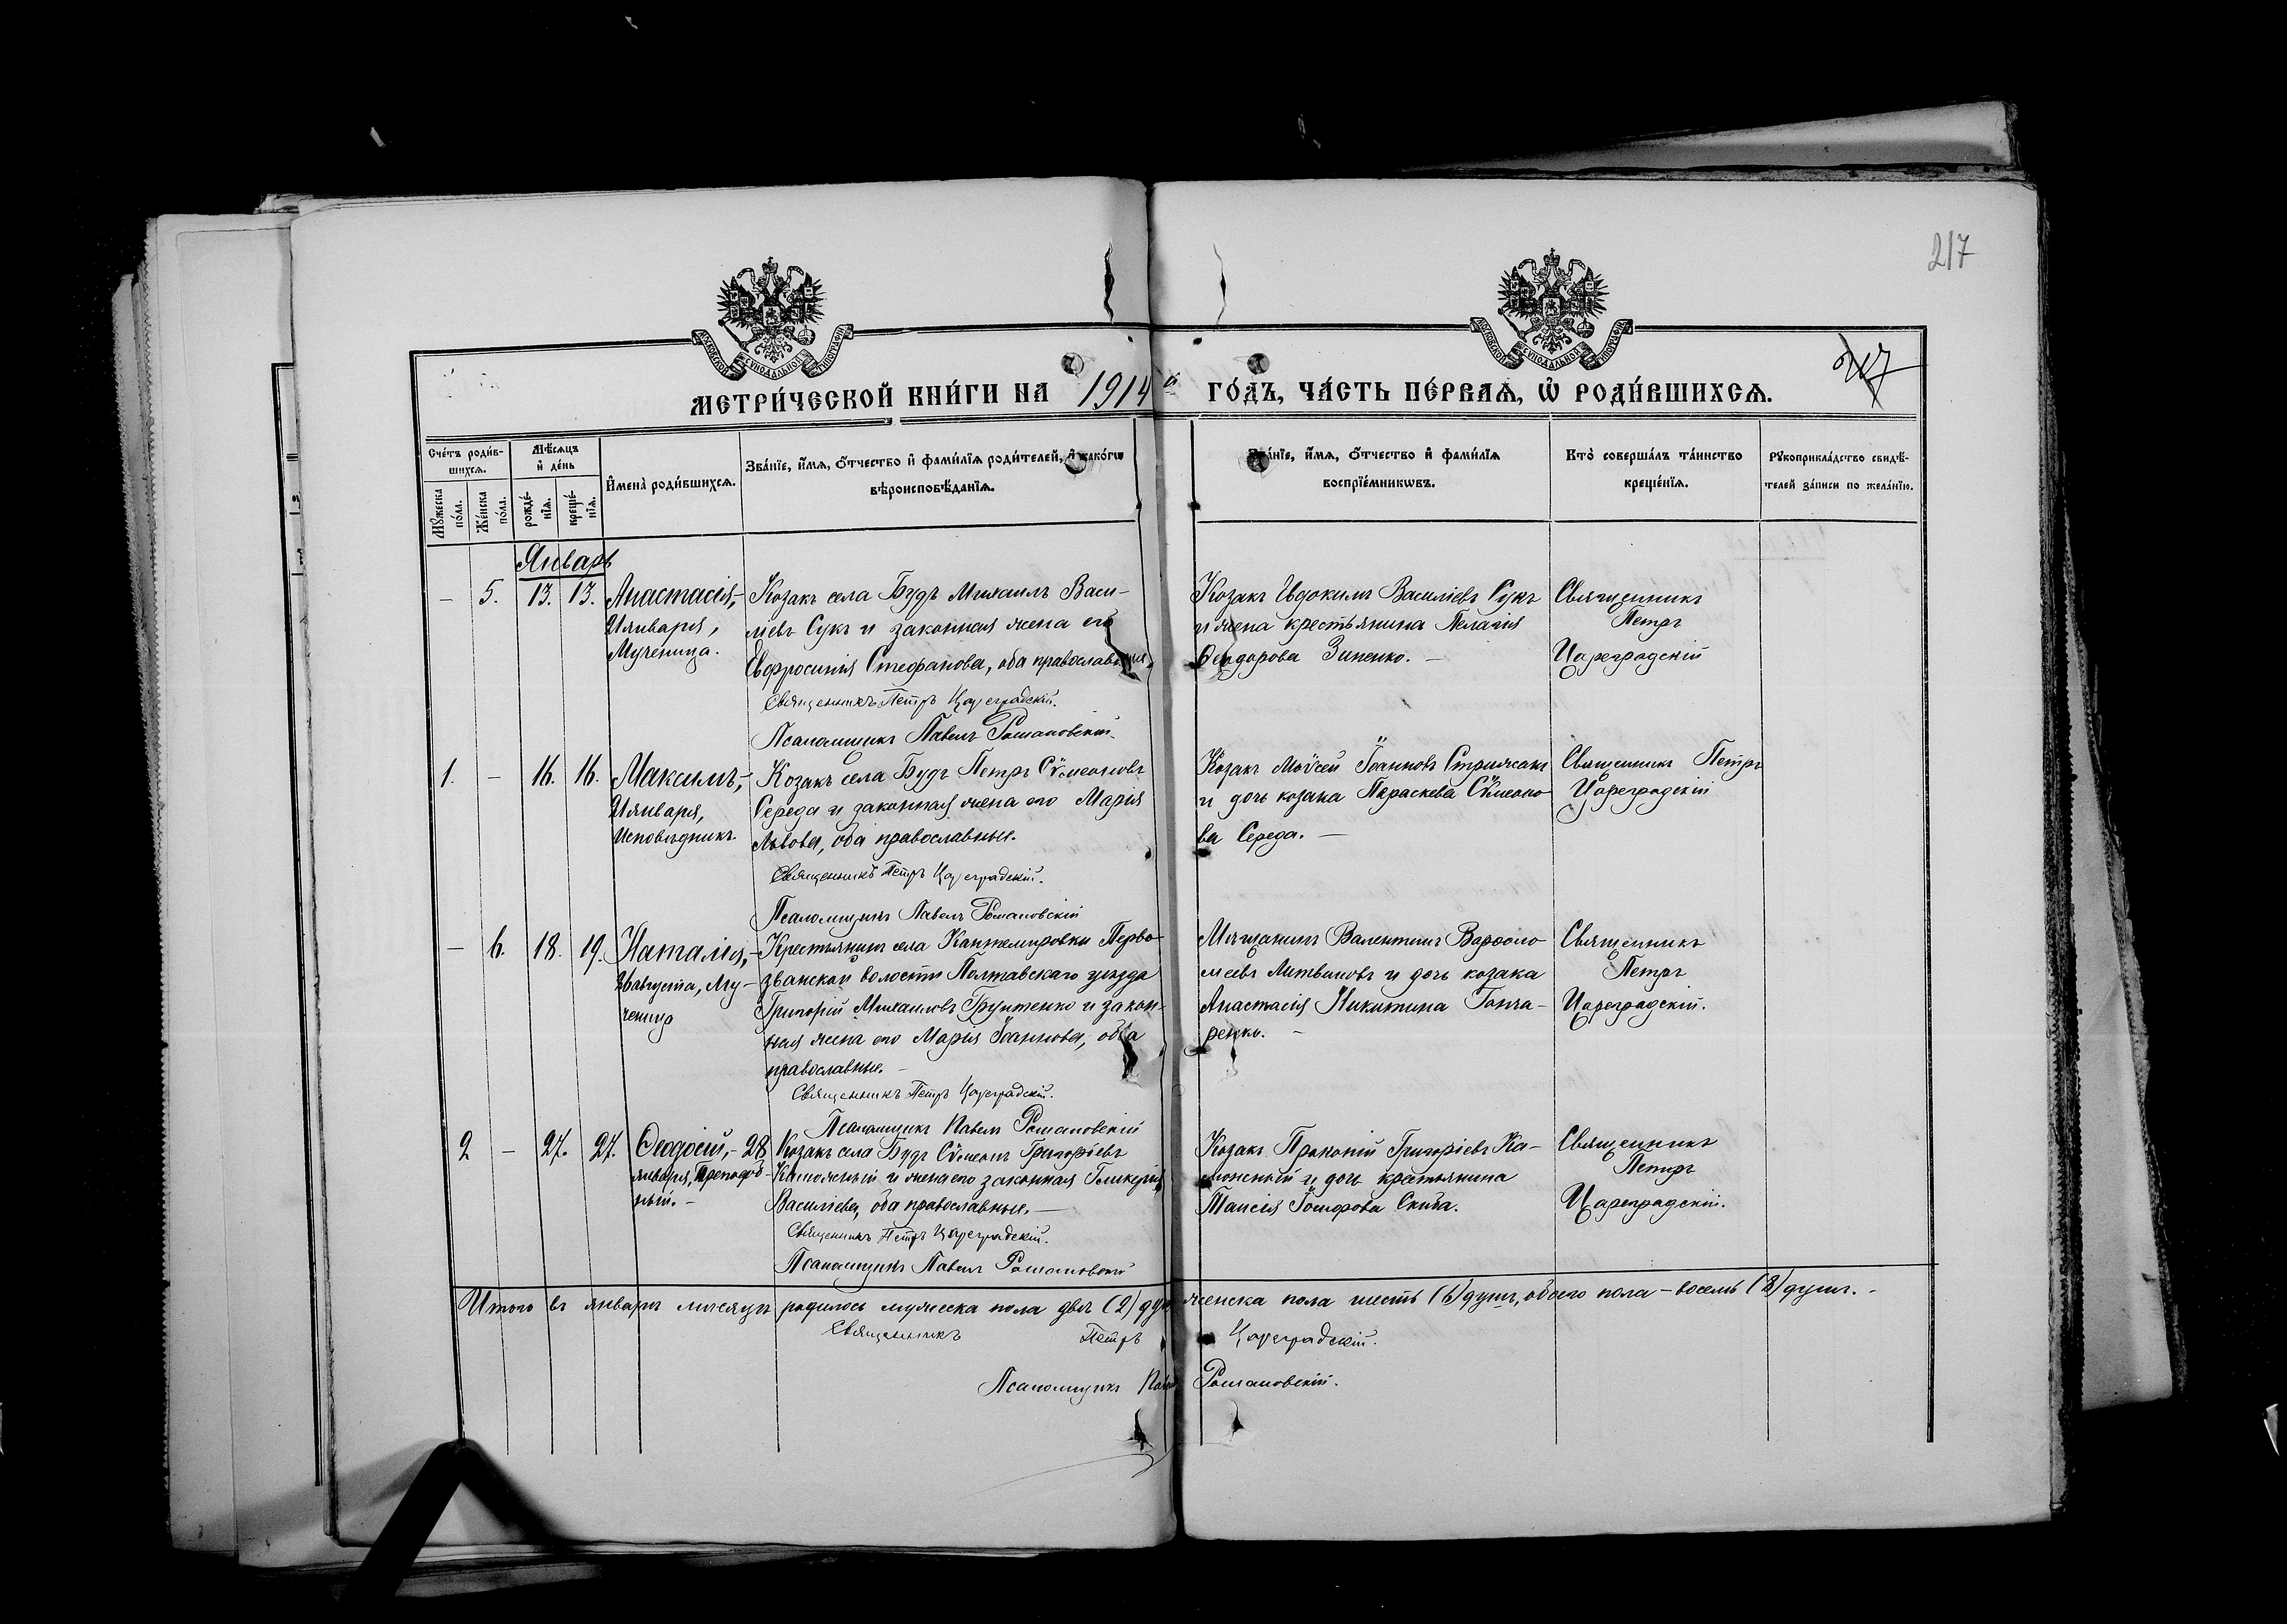 217
217
МОСКОВСКОЙ СѴНОДАЛЬНОЙ ТИПОГРАФІИ
МОСКОВСКОЙ СѴНОДАЛЬНОЙ ТИПОГРАФІИ
МЕТРИ́ЧЕСКОЙ КНИ́ГИ НА 1914й ГО́ДЪ, ЧА́СТЬ ПЕ́РВАѦ, Ѽ РОДИ́ВШИХСѦ.
Сче́тъ роди́в-
шихсѧ.
Мꙋ́жеска
по́ла.
Же́нска
по́ла.
Мѣ́сѧцъ
и҆ де́нь
рожде́-
нїѧ.
креще́-
нїѧ.
И҆мена̀ роди́вшихсѧ.
Зва́нїе, и҆́мѧ, ѻ҆́тчество и҆ фами́лїѧ роди́телей, и҆ како́гѡ
вѣроисповѣ́данїѧ.
Зва́нїе, и҆́мѧ, ѻ҆́тчество и҆ фами́лїѧ
воспрїе́мникѡвъ.
Кто̀ соверша́лъ та́инство
креще́нїѧ.
Рꙋкоприкла́дство свидѣ́-
телей за́писи по жела́нїю.
Январь
— 5. 13. 13. Анастасія,-
Января,
Мученица.
Козакъ села Будъ Михаилъ Васи-
ліевъ Сукъ и законная жена его
Евфросинія Стефанова, оба православные,
Священникъ Петръ Цареградскій.
Псаломщикъ Павелъ Романовскій.
Козакъ Евдокимъ Василіевъ Сукъ
и жена крестьянина Пелагія
Ѳеодорова Зиненко. —
Священникъ
Петръ
Цареградскій
1. — 16. 16. Максимъ,-
Января,
Исповѣдникъ.
Козакъ села Будъ Петръ Сѵмеоновъ
Середа и законная жена его Марія
Львова, оба православные.
Священникъ Петръ Цареградскій.
Псаломщикъ Павелъ Романовскій
Козакъ Моѵсей Іоанновъ Стрижакъ
и дочь козака Параскева Сѵмеоно
ва Середа. —
Священникъ Петръ
Цареградскій
— 6. 18. 19. Наталія,-
Августа, Му-
ченица
Крестьянинъ села Кантемировки Перво
званской волости Полтавскаго уѣзда
Григорій Михаиловъ Грунтенко и закон-
ная жена его Марія Іоаннова, оба
православные. —
Священникъ Петръ Цареградскій.
Псаломщикъ Павелъ Романовскій
Мѣщанинъ Валентинъ Варѳоло
меевъ Литвиновъ и дочь козака
Анастасія Никитина Гонча-
ренко. —
Священникъ
Петръ
Цареградскій.
2 — 27. 27. Ѳеодосій,- 28
января, Преподоб-
ный. -
Козакъ села Будъ Сѵмеонъ Григоріевъ
и жена его законная Гликерія
Василіева, оба православные. —
Священникъ Петръ Цареградскій.
Псаломщикъ Павелъ Романовскій
Козакъ Прокопій Григоріевъ Ка-
и дочь крестьянина
Таисія Скиба.
Священникъ
Петръ
Цареградскій.
Итого въ январѣ мѣсяцѣ родилось мужеска пола двѣ (2) женска пола шесть (6) душъ, обоего пола - восемь (8) душъ. -
Священникъ Петръ Цареградскій.
Псаломщикъ Павелъ Романовскій.